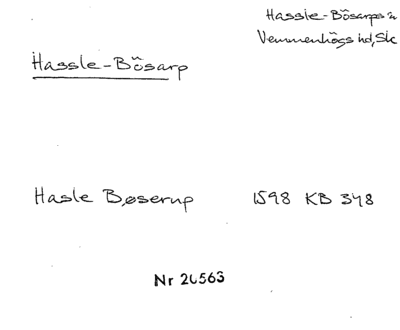 Hassle-Bösarps sn
Vemmenhögs hd, Sk
Hassle-Bösarp
Hasle Bøserup 1598 KB 348
Nr 20563